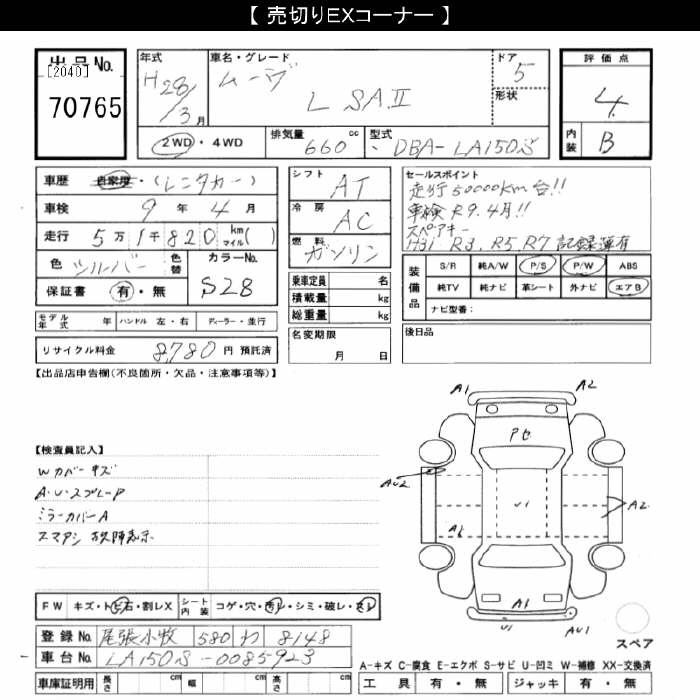 【 売切りEXコーナー 】
出品No.
[2040]
70765
年式
H28/3月
車名・グレード
ムーヴ
L SAⅡ
ドア
5
形状
2WD・4WD
排気量
660 cc
型式
DBA-LA150S
評価点
4
内装
B
車歴 自家用・(レンタカー)
車検 9年 4月
走行 5万1千820 km マイル( )
色 シルバー 色替 カラーNo.
S28
保証書 有・無
モデル年式 年 ハンドル 左・右 ディーラー・並行
リサイクル料金 8,780 円 預託済
シフト AT
冷房 AC
燃料 ガソリン
乗車定員 名
積載量 kg
総重量 kg
名変期限
月 日
セールスポイント
走行50000km台!!
車検R9.4月!!
スペアキー
H31 R3, R5, R7 記録簿有
装備品
S/R 純A/W P/S P/W ABS
純TV 純ナビ 革シート 外ナビ エアB
ナビ型番:
後日品
【出品店申告欄(不良箇所・欠品・注意事項等)】
【検査員記入】
Wカバー キズ
A・U・スプレーP
ミラーカバーA
スマアシ 故障表示
A1 A2
Pセ
AU2
U1
A2
A2
A1
U1 AU1
スペア
FW キズ・トビ石・割レX シート内装 コゲ・穴・汚レ・シミ・破レ・スレ
登録No. 尾張小牧 580 わ 8148
車台No. LA150S-0085923
車庫証明用 長さ cm 幅 cm 高さ cm
A-キズ C-腐食 E-エクボ S-サビ U-凹ミ W-補修 XX-交換済
工具 有・無 ジャッキ 有・無